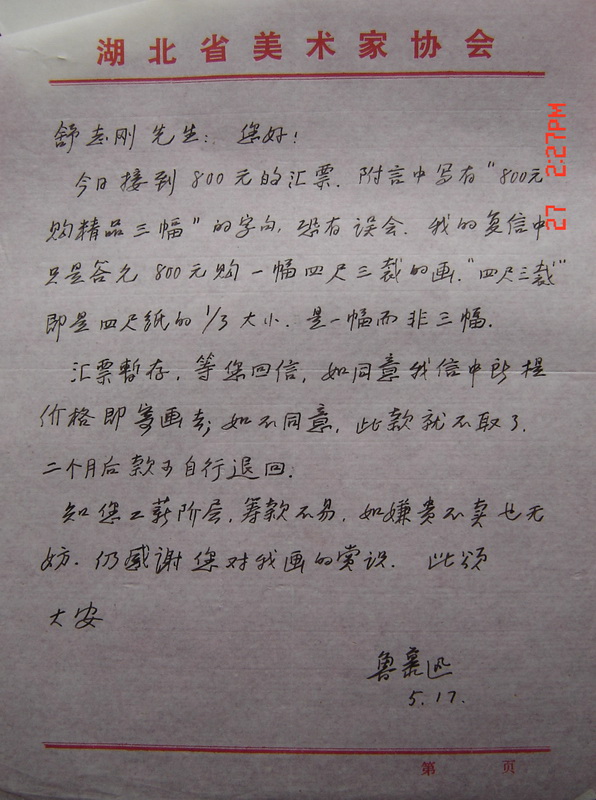 湖北省美术家协会
舒志刚先生：您好！
今日接到800元的汇票，附言中写有"800元
购精品三幅"的字句，恐有误会。我的复信中
只是答允800元购一幅四尺三裁的画。"四尺三裁"
即是四尺纸的1/3大小。是一幅而非三幅。
汇票暂存，等您回信，如同意我信中所提
价格即寄画去；如不同意，此款就不取了，
二个月后款可自行退回。
知您工薪阶层，筹款不易，如嫌贵不卖也无
妨。仍感谢您对我画的赏识。此颂
大安
鲁慕迅
5.17.
第 页
27 2:27PM